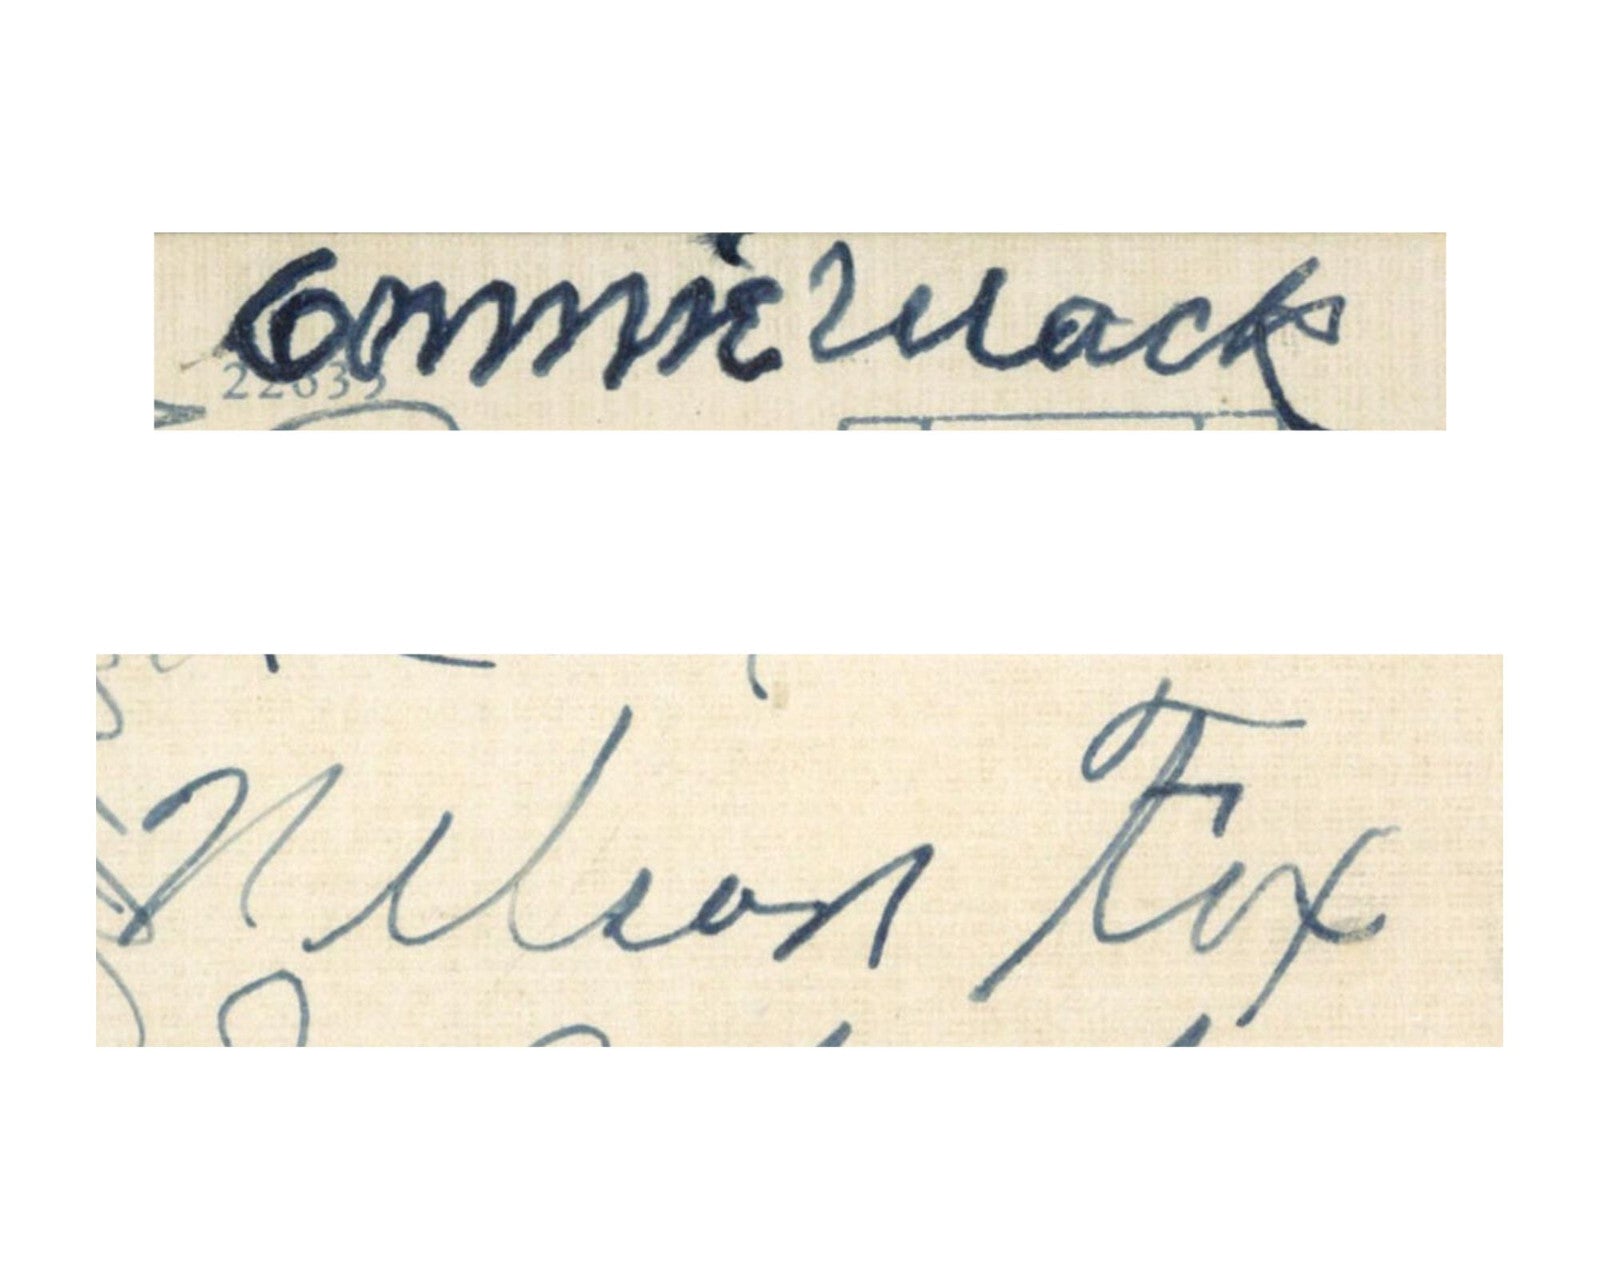 Connie Mack
Nelson Fox